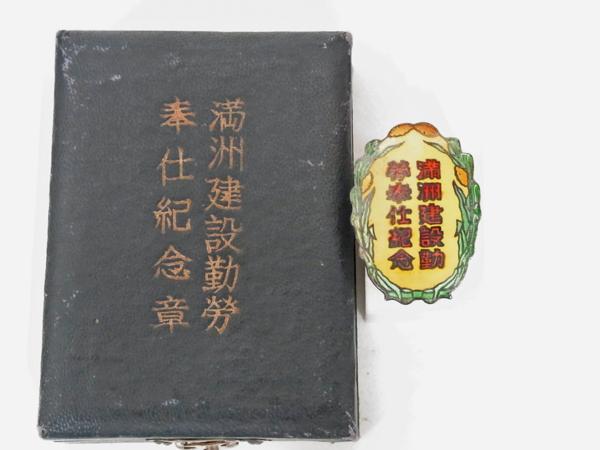 満洲建設勤労
奉仕紀念章
滿洲建設勤
労奉仕紀念